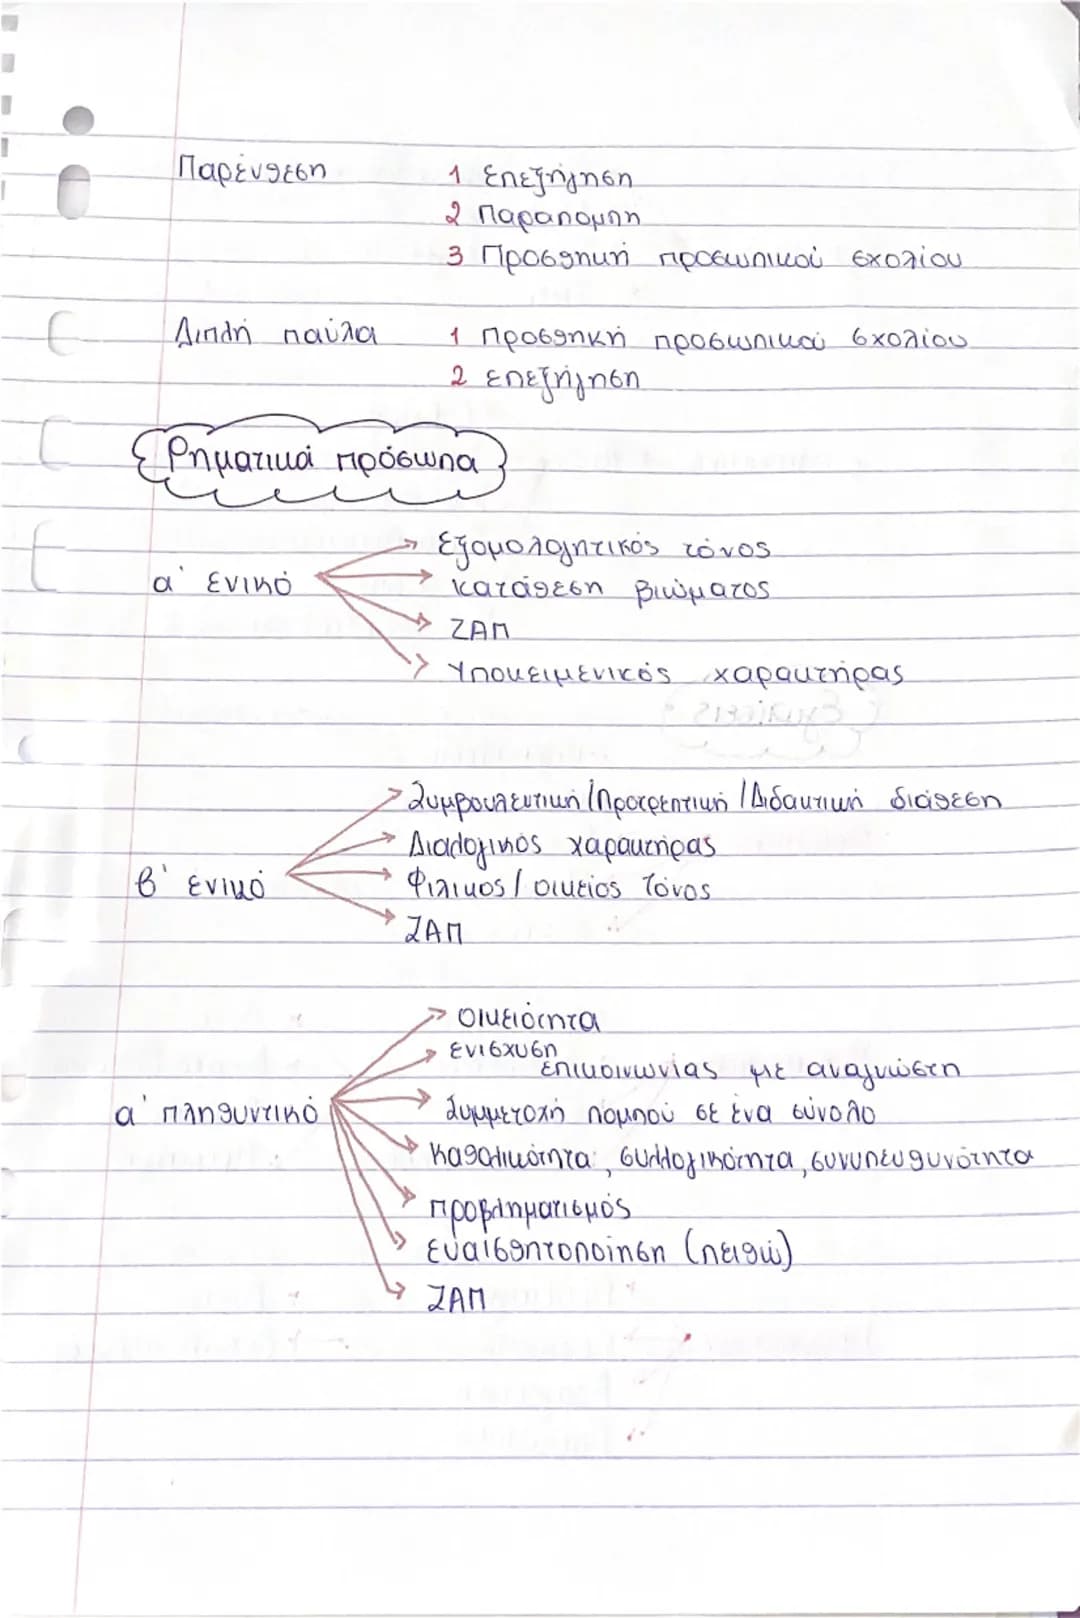 Παρένθεση 1 Επεξήγηση
2 Παραπομπή
3 Προσθήκη προσωπικού σχολίου
Διπλή παύλα 1 Προσθήκη προσωπικού σχολίου
2 Επεξήγηση
Ρηματικά πρόσωπα
Εξομολογητικός τόνος
α' ενικό κατάθεση βιώματος
ΖΑΠ
Υποκειμενικός χαρακτήρας
Συμβουλευτική/Προτρεπτική/Διδακτική διάθεση
Διαλογικός χαρακτήρας
β' ενικό Φιλικος/οικείος τόνος
ΖΑΠ
οικειότητα
ενισχυση
επικοινωνίας με αναγνώστη
α' πληθυντικό Συμμετοχή πομπού σε ένα σύνολο
Καθολικότητα, συλλογικότητα, συνυπευθυνότητα
προβληματισμός
ευαισθητοποίηση (πειθώ)
ΖΑΠ